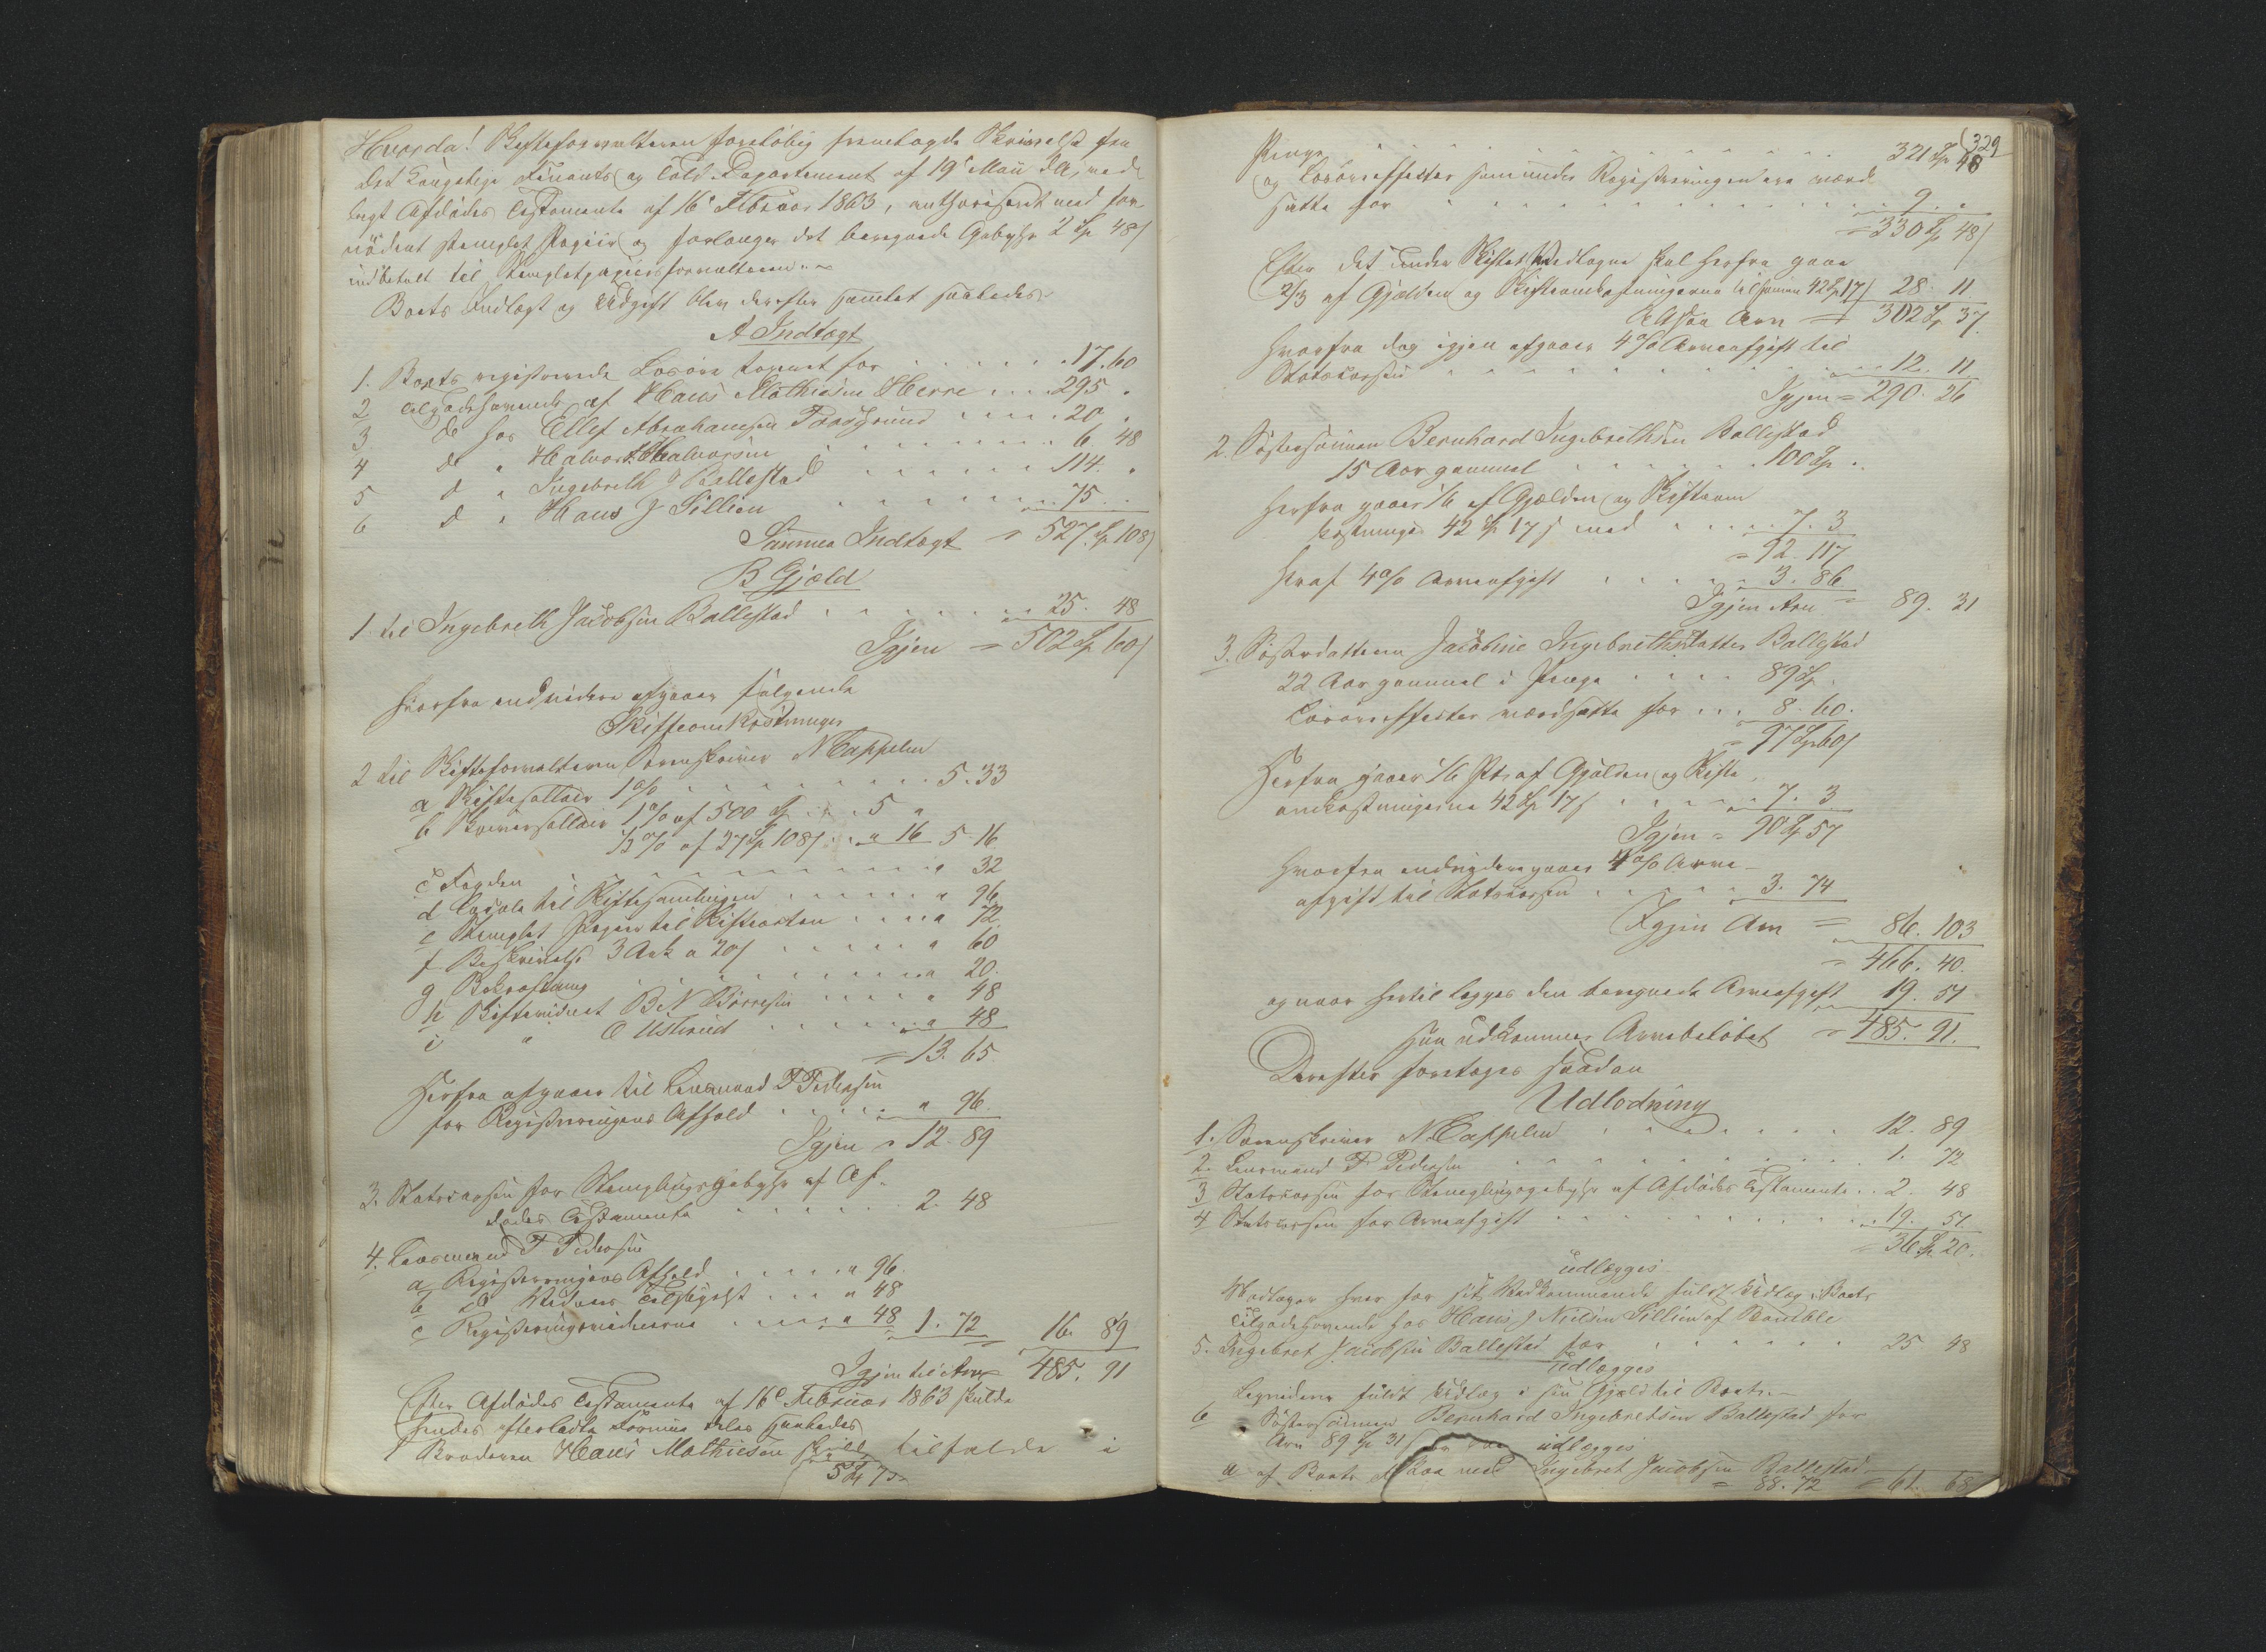 Hvorda! Skifteforvalteren foreløbig fremlagde Skrivelse fra
det Kongelige Finants og Told-Departement af 19de Mai d A, ved-
lagt Afdødes Testamente af 16de Februar 1863, authoriseret med for-
nødent stemplet Papiir og forlanger det beregnede Gebyhr 2 Sp 48 s
indbetalt til Stempletpapiirsforvalteren. —
Boets Indtægt og Udgift blev derefter samlet saaledes
A Indtægt
1. Boets registrerede Løsøre taxeret for . . . 17. 60
2 Tilgodehavende af Hans Mathiesen Herre . . . 295 .
3 do hos Ellef Abrahamsen Porsgrund . . . 20 .
4 do " Halvor Halvorsen . . . 6. 48
5 d " Ingebreth J Ballestad . . . 114. .
6 d " Hans J Sillien . . . 75 . .
Summa Indtægt = 527 Sp 108 s
B Gjæld
1 til Ingebreth Jacobsen Ballestad . . . 25. 48
Igjen = 502 Sp 60 s
Hvorfra endvidere afgaaer følgende
Skifteomkostninger
2 til Skifteforvalteren Sorenskriver N Cappelen
a Skiftesallair 1 % . . . 5. 33
b Skriversallair 1 % af 500 Sp . . . 5 "
½ % af 27 Sp 108 s . . " 16 5. 16
c Fogden . . . " 32
d Locale til Skiftesamlingen . . . " 96
e Stemplet Papiir til Skifteacten . . . " 72
f Beskrivelse 3 Ark a 20 s . . . " 60
g Bekræftning . . . " 20.
h Skiftevidnet B N Børresen . . . " 48
i " O Ustvud . . . " 48
= 13. 65
Herfra afgaaer til Lensmand P Pedersen
for Registreringens Afhold . . . " 96.
Igjen = 12. 89
3. Statscassen for Stemplingsgebyhr af Af-
dødes Testamente . . . 2. 48
4. Lensmand P Pedersen
a Registreringens Afhold . . . " 96.
b do Vidners Tilsigelse . . . " 48
c Registreringsvidnerne . . . " 48 1. 72 16. 89
Igjen til Arv 485. 91
Efter Afdødes Testamente af 16de Februar 1863 skulde
hendes efterladte Formue deles saaledes
1 Broderen Hans Mathiesen skulde tilfalde i
5 Sp 75
329
Penge . . . 321 Sp 48
og Løsøreeffecter som under Registreringen ere værd-
satte for . . . 9. .
= 330 Sp 48 s
Efter det under Skiftet Vedtagne skal herfra gaae
2/3 af Gjælden og Skifteomkostningerne tilsammen 42 Sp 17 s 28. 11
Altsaa Arv = 302 Sp 37
Hvorfra dog igjen afgaaer 4 % Arveafgift til
Statscassen . . . 12. 11
Igjen = 290. 26
2. Søstersønnen Bernhard Ingebrethsen Ballestad
15 Aar gammel . . . 100 Sp .
herfra gaaer 1/6 af Gjælden og Skifteom-
kostninger 42 Sp 17 s med . . . 7. 3
= 92. 117
heraf 4 % Arveafgift . . . 3. 86
Igjen Arv = 89. 31
3. Søsterdatteren Jacobine Ingebrethsdatter Ballestad
22 Aar gammel i Penge . . . 89 Sp .
Løsøreeffecter værdsatte for . . . 8. 60.
= 97 Sp 60 s
Herfra gaaer 1/6 Pt af Gjælden og Skifte-
omkostningerne 42 Sp 17 s . . . 7. 3
Igjen = 90 Sp 57
hvorfra endvidere gaaer 4 % Arve-
afgift til Statscassen . . . 3. 74
Igjen Arv = 86. 103
= 466. 40.
og naar hertil lægges den beregnede Arveafgift 19. 51
saa udkommer Arvebeløbet = 485. 91.
Derefter foretoges saadan
Udlodning
1. Sorenskriver N. Cappelen . . . 12. 89
2. Lensmand P Pedersen . . . 1. 72
3 Statscassen for Stemplingsgebyhr af Afdødes Testamente . . 2. 48
4 Statscassen for Arveafgift . . . 19. 51
= 36 Sp 20.
udlægges
Modtager hver for sit Vedkommende fuldt Udlæg i Boets
Tilgodehavende hos Hans J Nielsen Sillien af Bamble
5. Ingebret Jacobsen Ballestad for . . . 25 48
udlægges
Ligeledes fuldt Udlæg i sin Gjæld til Boet. —
6 Søstersønnen Bernhard Ingebretsen Ballestad for
Arv 89 Sp 31 s udlægges
a af Boets Ingebret Jacobsen Ballestad
= 88. 72 = 61. 68